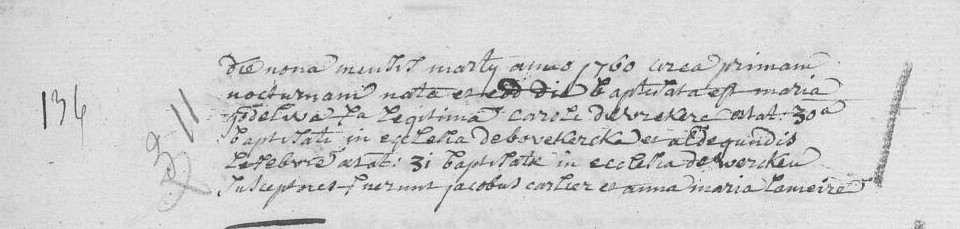 136
die nona mensis martij anno 1760 circa primam
nocturnam nata et eod die baptisata est maria
godelwa fa legitima caroli dewrekere ætat: 30 a
baptisati in ecclesia de bovekercke et aldegundis
lefebvre ætat: 31 baptisatæ in ecclesia de wercken
susceptores fuerunt jacobus carlier et anna maria lameire